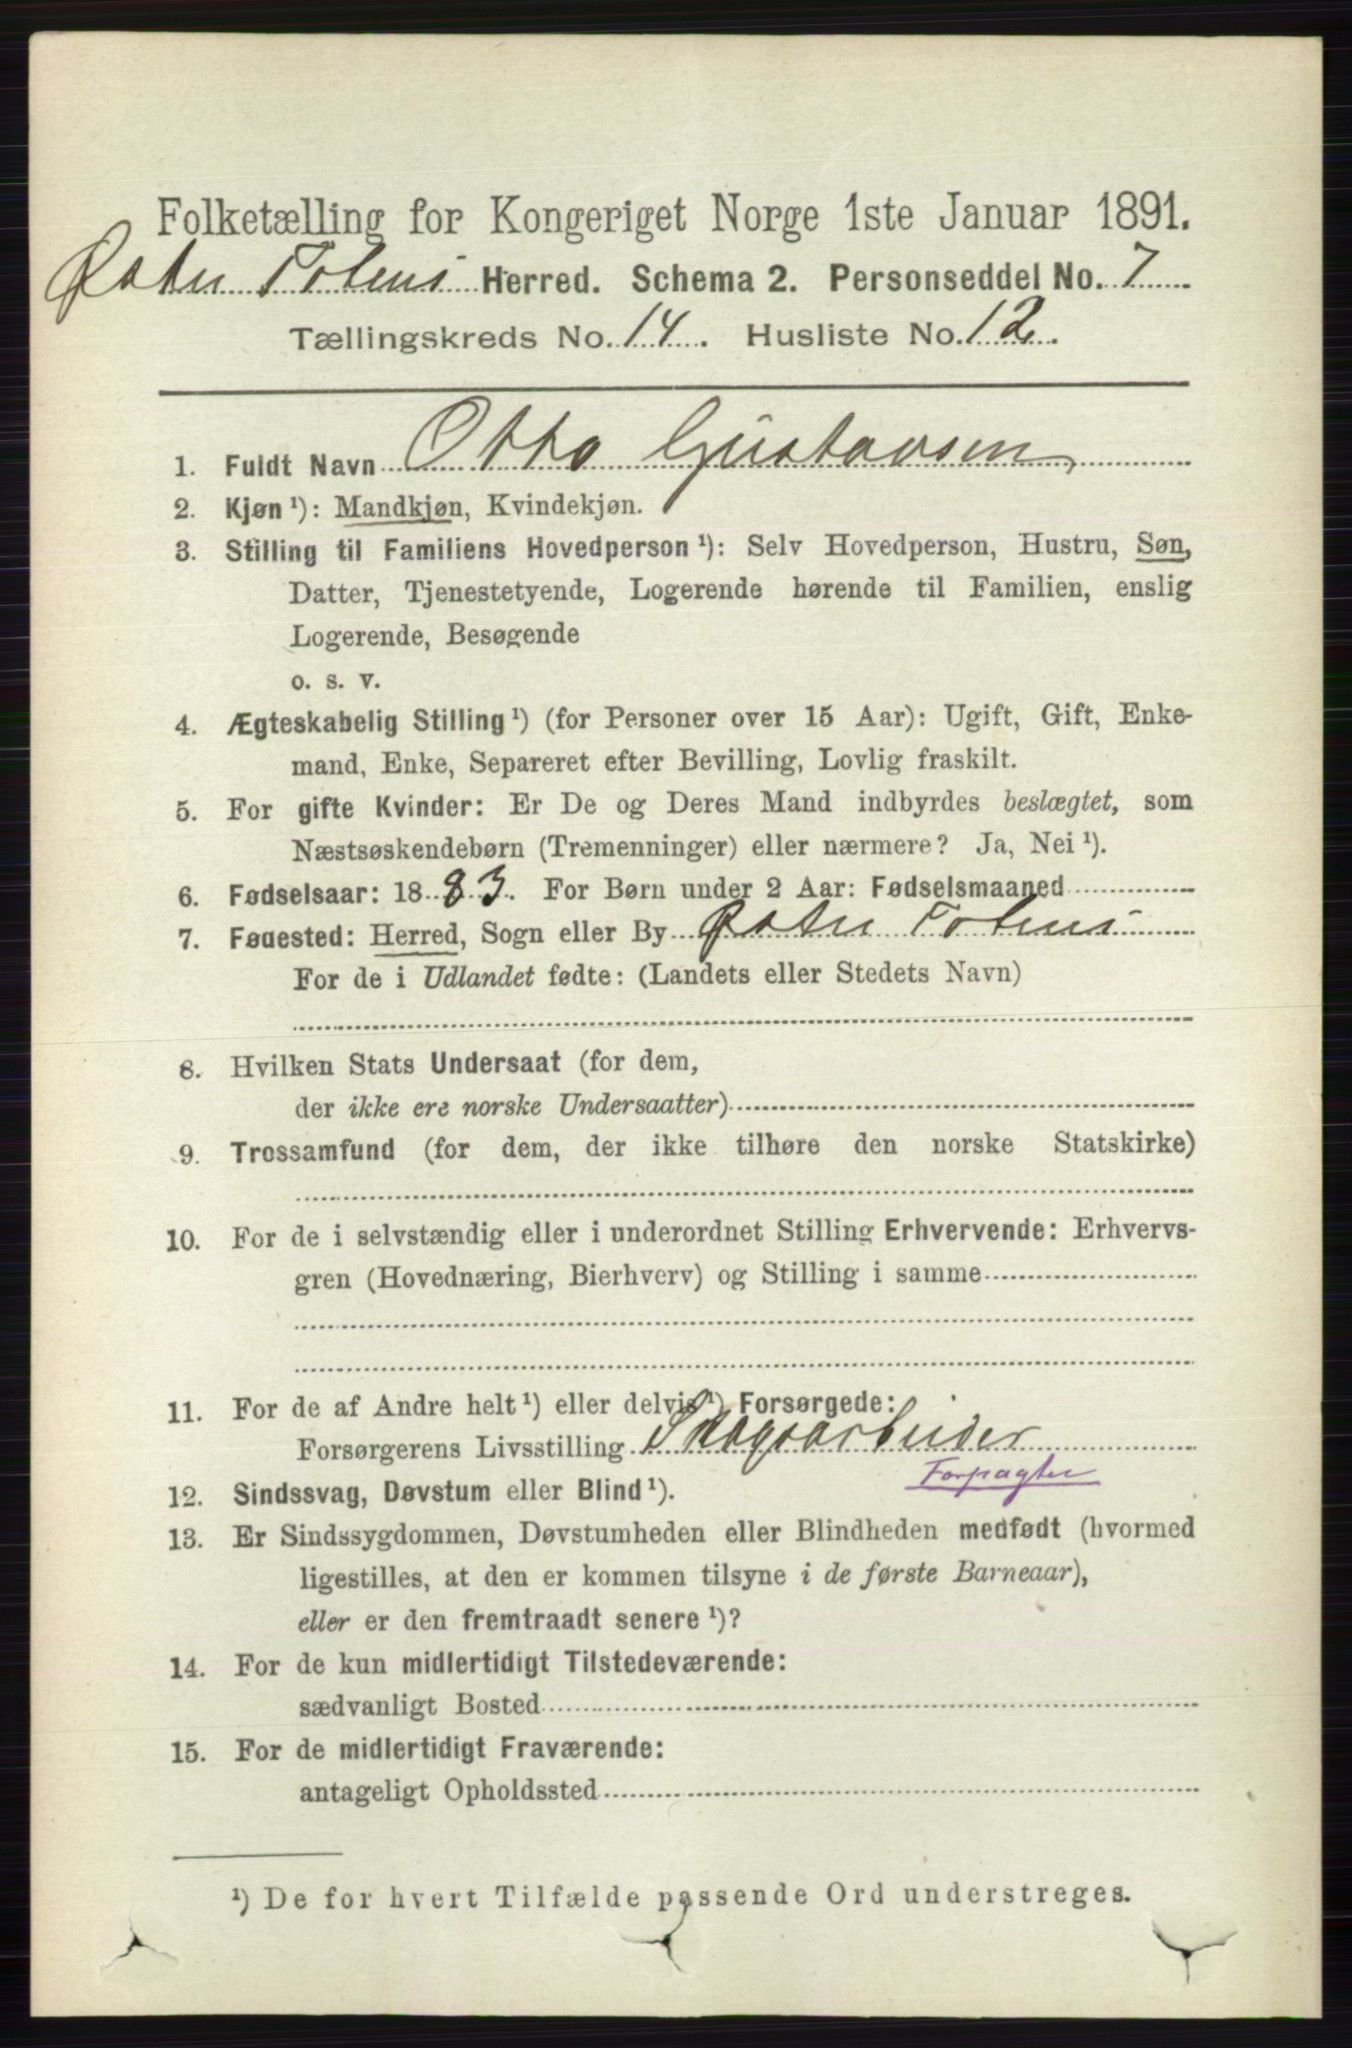 Folketælling for Kongeriget Norge 1ste Januar 1891.
Østre Totens Herred. Schema 2. Personseddel No. 7
Tællingskreds No. 14. Husliste No. 12.
1. Fuldt Navn Otto Gustavsen
2. Kjøn ¹): Mandkjøn, Kvindekjøn.
3. Stilling til Familiens Hovedperson ¹): Selv Hovedperson, Hustru, Søn,
Datter, Tjenestetyende, Logerende hørende til Familien, enslig
Logerende, Besøgende
o. s. v.
4. Ægteskabelig Stilling ¹) (for Personer over 15 Aar): Ugift, Gift, Enke-
mand, Enke, Separeret efter Bevilling, Lovlig fraskilt.
5. For gifte Kvinder: Er De og Deres Mand indbyrdes beslægtet, som
Næstsøskendebørn (Tremenninger) eller nærmere? Ja, Nei ¹).
6. Fødselsaar: 1883. For Børn under 2 Aar: Fødselsmaaned
7. Fødested: Herred, Sogn eller By Østre Totens
For de i Udlandet fødte: (Landets eller Stedets Navn)
8. Hvilken Stats Undersaat (for dem,
der ikke ere norske Undersaatter)
9. Trossamfund (for dem, der ikke tilhøre den norske Statskirke)
10. For de i selvstændig eller i underordnet Stilling Erhvervende: Erhvervs-
gren (Hovednæring, Bierhverv) og Stilling i samme
11. For de af Andre helt ¹) eller delvis ¹) Forsørgede:
Forsørgerens Livsstilling Skogsarbeider
Forpagter
12. Sindssvag, Døvstum eller Blind ¹).
13. Er Sindssygdommen, Døvstumheden eller Blindheden medfødt (hvormed
ligestilles, at den er kommen tilsyne i de første Barneaar),
eller er den fremtraadt senere ¹)?
14. For de kun midlertidigt Tilstedeværende:
sædvanligt Bosted
15. For de midlertidigt Fraværende:
antageligt Opholdssted
¹) De for hvert Tilfælde passende Ord understreges.